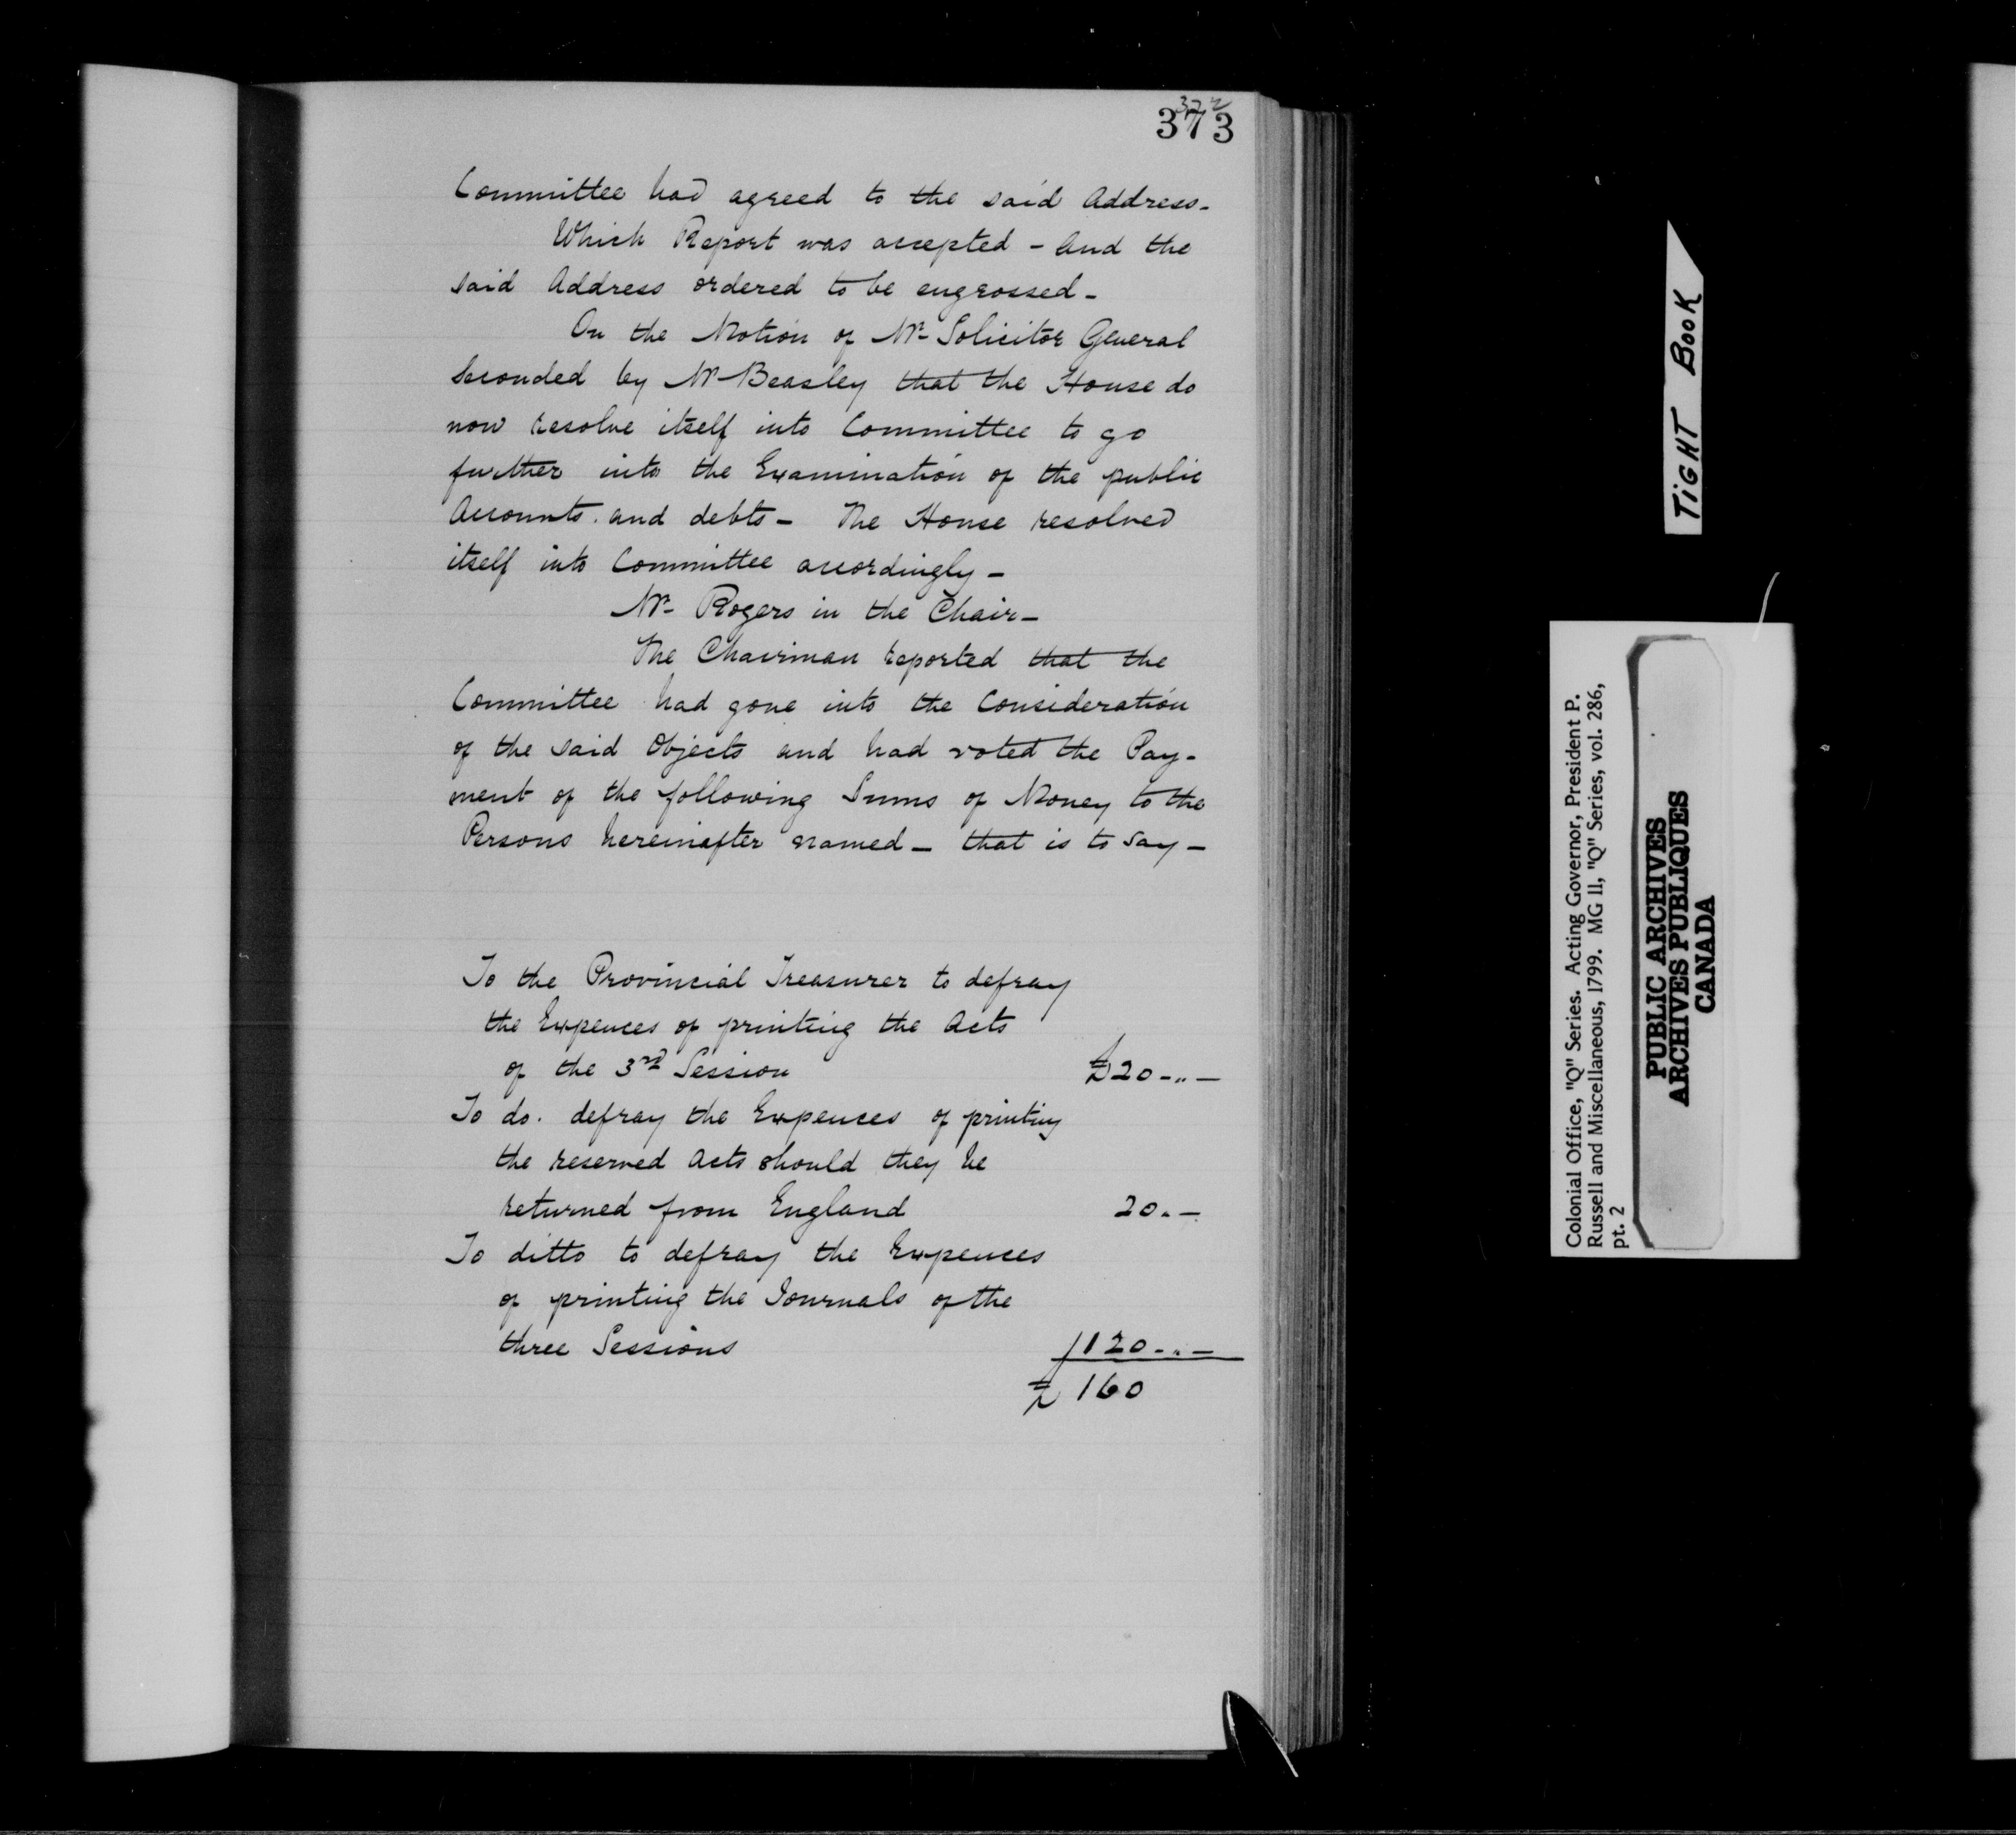 372
373
Committee had agreed to the said Address-
Which Report was accepted - And the
said Address ordered to be engrossed-
On the Motion of Mr Solicitor General
Seconded by Mr Beasley that the House do
now resolve itself into Committee to go
further into the Examination of the public
Accounts and debts- The House resolved
itself into Committee accordingly-
Mr Rogers in the Chair-
The Chairman reported that the
Committee had gone into the Consideration
of the said Objects and had voted the Pay-
ment of the following Sums of Money to the
Persons hereinafter named- that is to say-
To the Provincial Treasurer to defray
the Expences of printing the Acts
of the 3rd Session £20-"-
To do. defray the Expences of printing
the reserved Acts should they be
returned from England 20.-
To ditto to defray the Expences
of printing the Journals of the
three Sessions 120-"-
£ 160
TIGHT BOOK
Colonial Office, "Q" Series. Acting Governor, President P.
Russell and Miscellaneous, 1799. MG 11, "Q" Series, vol. 286,
pt. 2
PUBLIC ARCHIVES
ARCHIVES PUBLIQUES
CANADA